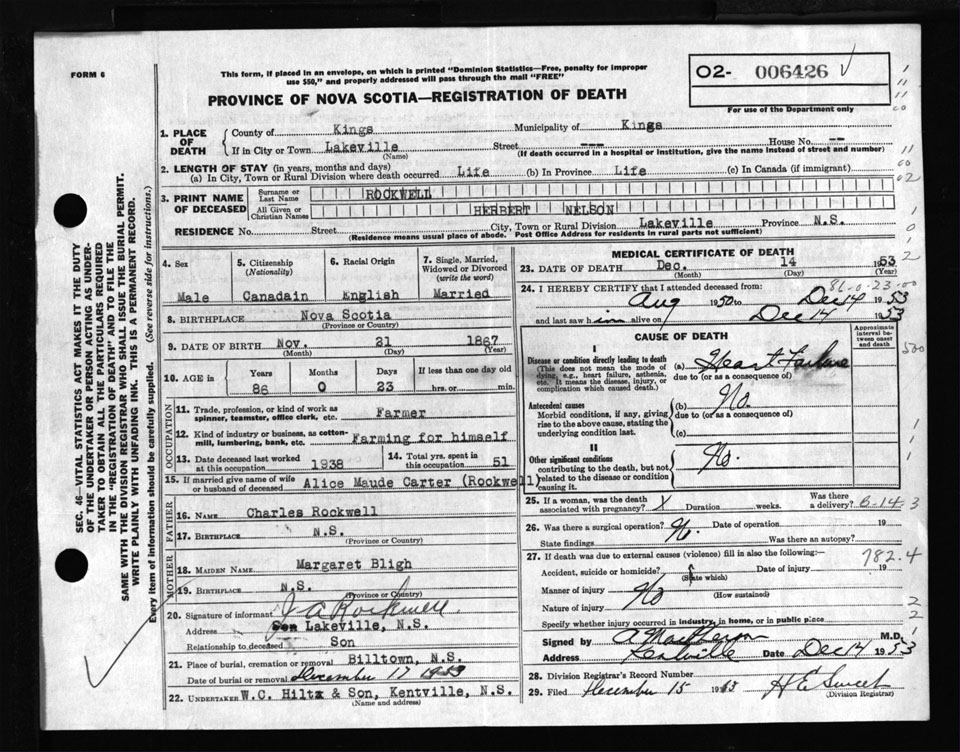 FORM 6
This form, if placed in an envelope, on which is printed "Dominion Statistics—Free, penalty for improper
use $50," and properly addressed will pass through the mail "FREE"
PROVINCE OF NOVA SCOTIA—REGISTRATION OF DEATH
02- 006426
For use of the Department only
SEC. 46—VITAL STATISTICS ACT MAKES IT THE DUTY
OF THE UNDERTAKER OR PERSON ACTING AS UNDER-
TAKER TO OBTAIN ALL THE PARTICULARS REQUIRED
IN THE "REGISTRATION OF DEATH" AND TO FILE THE
SAME WITH THE DIVISION REGISTRAR WHO SHALL ISSUE THE BURIAL PERMIT.
WRITE PLAINLY WITH UNFADING INK. THIS IS A PERMANENT RECORD.
Every item of information should be carefully supplied. (See reverse side for instructions.)
1. PLACE OF DEATH County of Kings Municipality of Kings
If in City or Town Lakeville Street --- House No. --
(Name) (If death occurred in a hospital or institution, give the name instead of street and number)
2. LENGTH OF STAY (in years, months and days)
(a) In City, Town or Rural Division where death occurred Life (b) In Province Life (c) In Canada (if immigrant)
3. PRINT NAME OF DECEASED Surname or Last Name ROCKWELL
All Given or Christian Names HERBERT NELSON
RESIDENCE No. Street City, Town or Rural Division Lakeville Province N.S.
(Residence means usual place of abode. Post Office Address for residents in rural parts not sufficient)
4. Sex Male
5. Citizenship (Nationality) Canadain
6. Racial Origin English
7. Single, Married, Widowed or Divorced (write the word) Married
8. BIRTHPLACE Nova Scotia
(Province or Country)
9. DATE OF BIRTH Nov. 21 1867
(Month) (Day) (Year)
10. AGE in Years Months Days If less than one day old
86 0 23 hrs. or min.
OCCUPATION
11. Trade, profession, or kind of work as spinner, teamster, office clerk, etc. Farmer
12. Kind of industry or business, as cotton-mill, lumbering, bank, etc. Farming for himself
13. Date deceased last worked at this occupation 1938
14. Total yrs. spent in this occupation 51
15. If married give name of wife or husband of deceased Alice Maude Carter (Rockwell)
FATHER
16. NAME Charles Rockwell
17. BIRTHPLACE N.S.
(Province or Country)
MOTHER
18. MAIDEN NAME Margaret Bligh
19. BIRTHPLACE N.S.
(Province or Country)
20. Signature of informant J A Rockwell
Address Son Lakeville, N.S.
Relationship to deceased Son
21. Place of burial, cremation or removal Billtown, N.S.
Date of burial or removal December 17 1953
22. UNDERTAKER W.C. Hiltz & Son, Kentville, N.S.
(Name and Address)
MEDICAL CERTIFICATE OF DEATH
23. DATE OF DEATH Dec. 14 1953
(Month) (Day) (Year)
24. I HEREBY CERTIFY that I attended deceased from: 86-0-23-00
Aug 1950 to Dec 14 1953
and last saw him alive on Dec 14 1953
CAUSE OF DEATH
Approximate interval between onset and death
I
Disease or condition directly leading to death
(This does not mean the mode of dying, e.g., heart failure, asthenia, etc. It means the disease, injury, or complication which caused death.)
(a) Heart Failure
due to (or as a consequence of)
Antecedent causes
Morbid conditions, if any, giving rise to the above cause, stating the underlying condition last.
(b) No.
due to (or as a consequence of)
(c)
II
Other significant conditions
contributing to the death, but not related to the disease or condition causing it.
No.
25. If a woman, was the death associated with pregnancy? X Duration weeks. Was there a delivery? 6-14-3
26. Was there a surgical operation? No. Date of operation 19
State findings Was there an autopsy?
27. If death was due to external causes (violence) fill in also the following:- 782.4
Accident, suicide or homicide? (State which) Date of injury 19
Manner of injury No (How sustained)
Nature of injury
Specify whether injury occurred in industry, in home, or in public place
Signed by A MacPherson M.D.
Address Kentville Date Dec 14 1953
28. Division Registrar's Record Number
29. Filed December 15 1953 H E Sweet
(Division Registrar)